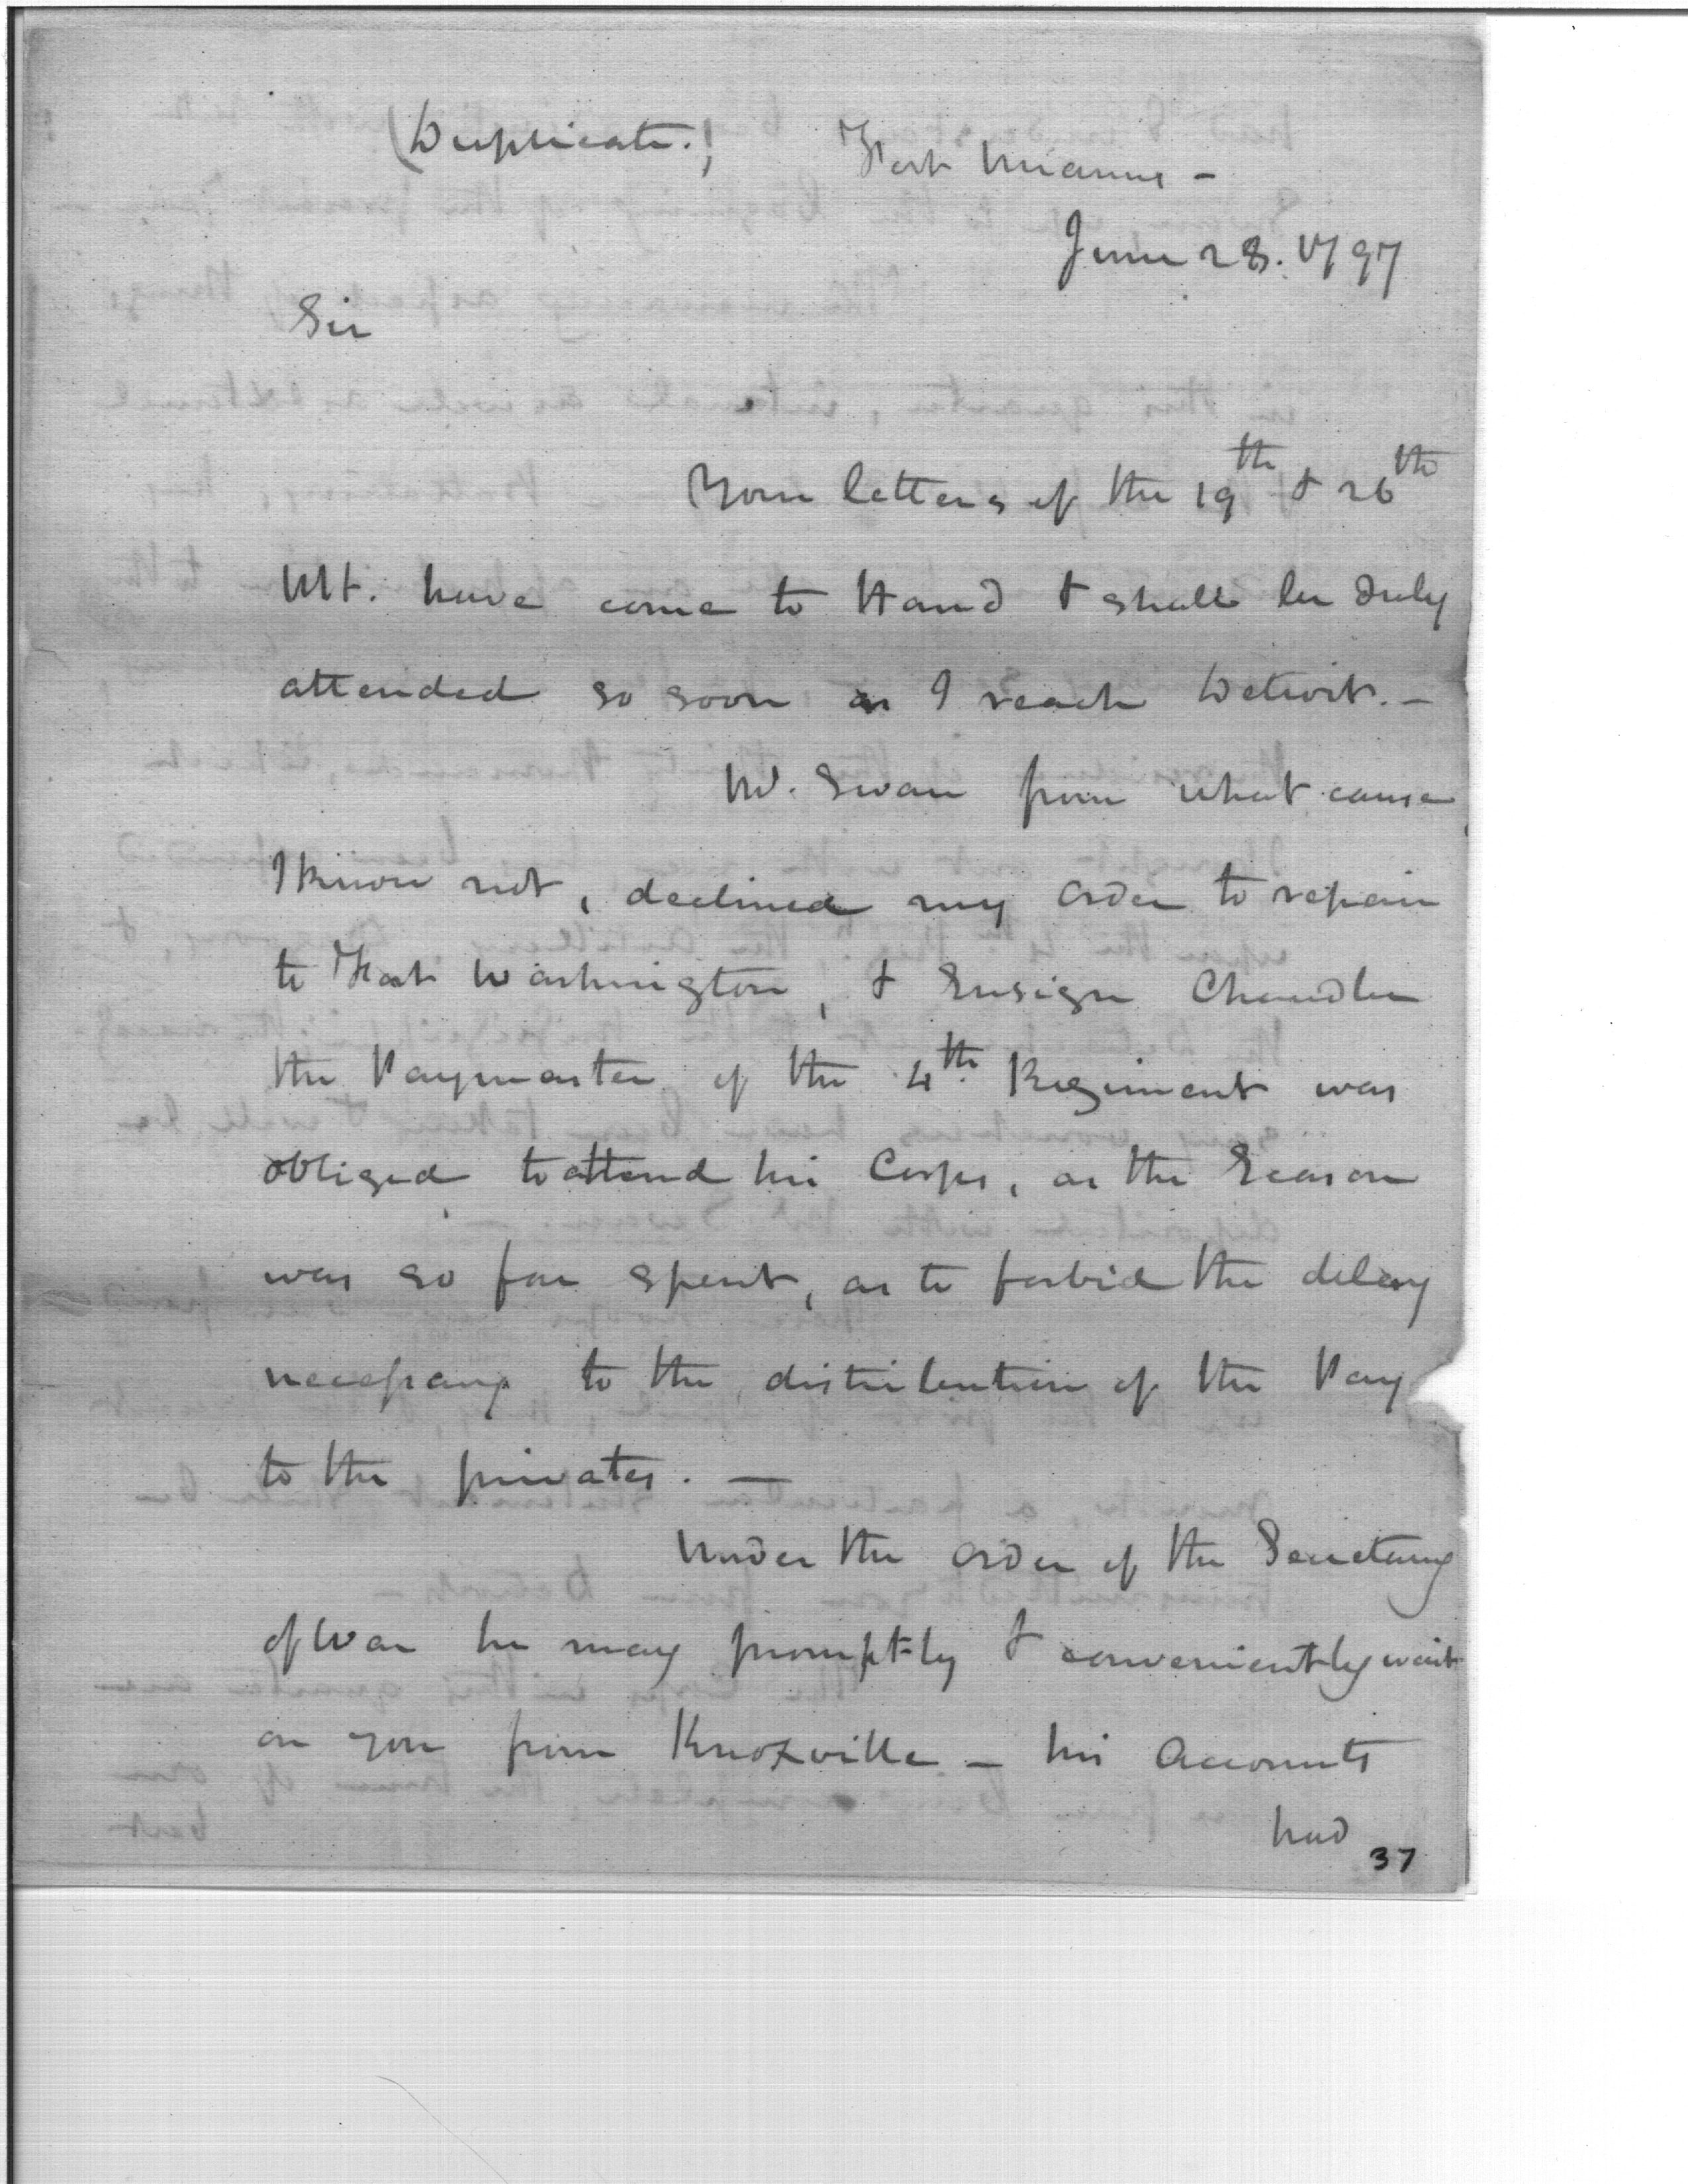 (Duplicate.)
Fort Miamis –
June 28. 1797
Sir
Your letters of the 19th & 26th
Ult. have come to Hand & shall be duly
attended so soon as I reach Detroit. –
Mr. Swan from what cause
I know not, declined my order to repair
to Fort Washington, & Ensign Chandler
the Paymaster of the 4th Regiment was
obliged to attend his Corps, as the Season
was so far spent, as to forbid the delay
necessary to the distribution of the Pay
to the privates. –
Under the order of the Secretary
of War he may promptly & conveniently wait
on you from Knoxville – his Accounts
had
37